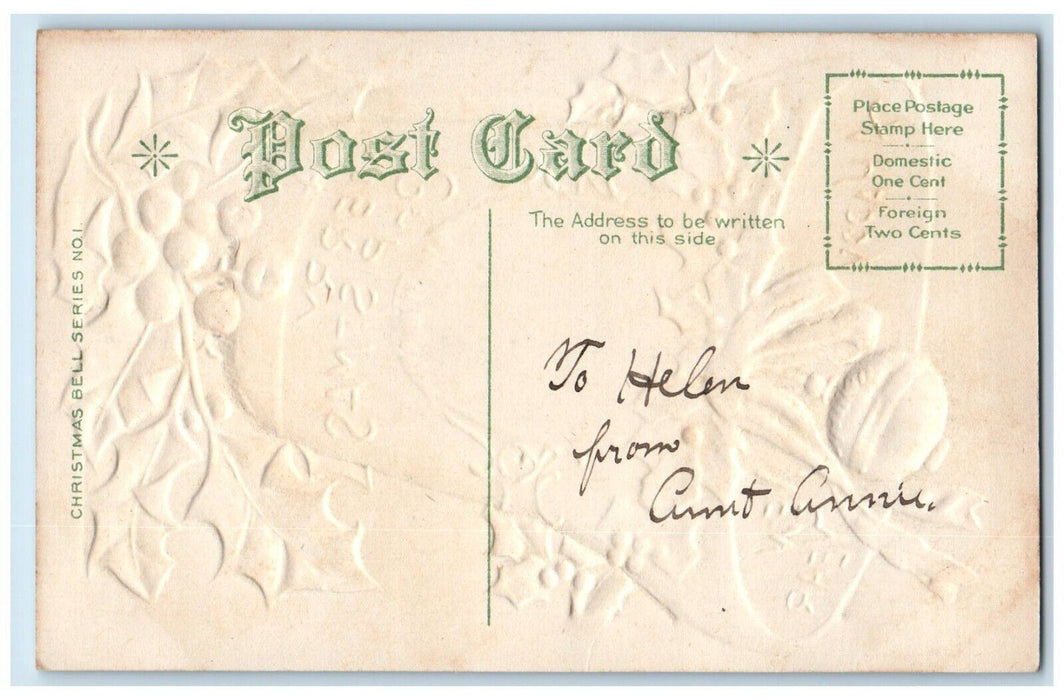 Post Card
Place Postage
Stamp Here
Domestic
One Cent
Foreign
Two Cents
The Address to be written
on this side
CHRISTMAS BELL SERIES NO.1.
To Helen
from
Aunt Annie.